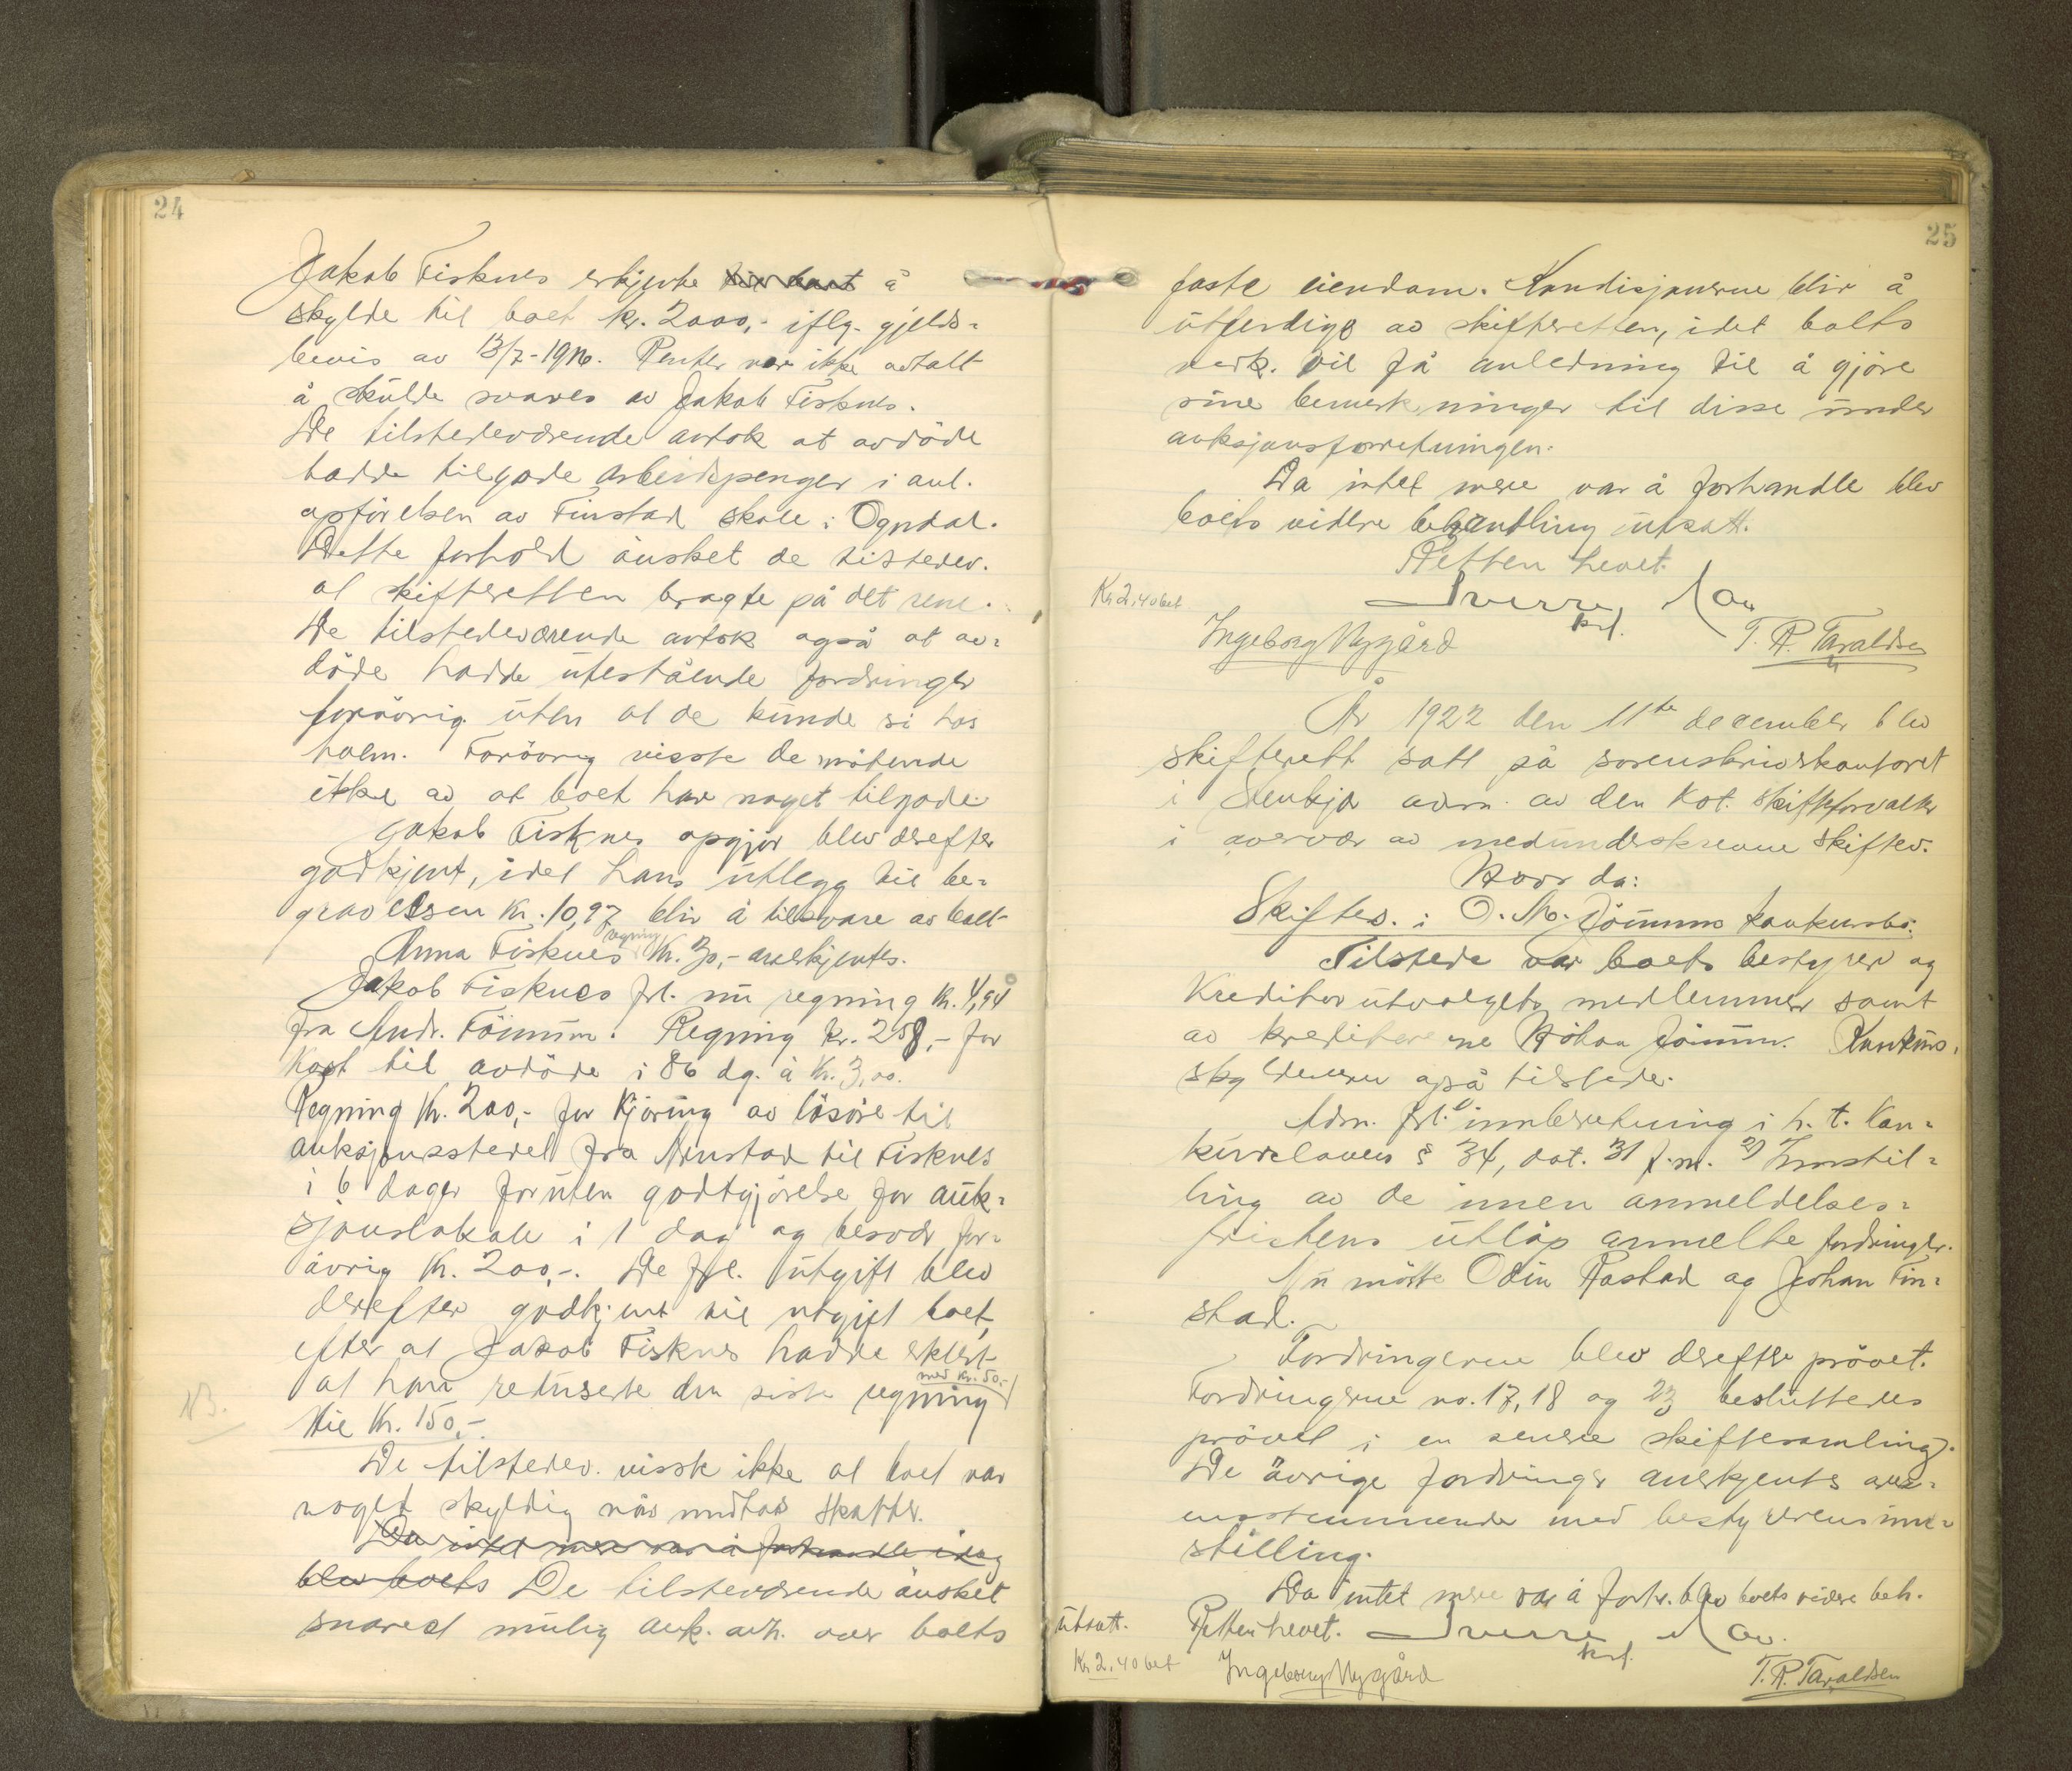 24
Jakob Fisknes erkjente å
skylde til boet kr. 2000,- iflg. gjelds=
bevis av 13/7-1916. Renter var ikke avtalt
å skulde svares av Jakob Fisknes.
De tilstedeværende antok at avdöde
hadde tilgode arbeidspenger i anl.
opförelsen av Finstad skole i Ogndal.
Dette forhold önsket de tilstedev.
at skifteretten bragte på det rene.
De tilstedeværende antok også at av=
döde hadde utestående fordringer
forövrig uten at de kunde si hos
hvem. Forövrig visste de mötende
ikke av at boet har noget tilgode.
Jakob Fisknes opgjör blev derefter
godkjent, idet hans utlegg til be=
gravelsen kr. 10,97 blir å tilsvare av boet
Anna Fisknes regning kr. 30,- anerkjentes.
Jakob Fisknes frl. nu regning kr. 4,94
fra Andr. Töinum. Regning kr. 258,- for
kost til avdöde i 86 dg. à kr. 3,00.
Regning kr. 200,- for kjöring av lösöre til
auksjonsstedet fra Arnstad til Fisknes
i 6 dager foruten godtgjörelse for auk=
sjonslokale i 1 dag og besvær for=
övrig kr. 200,-. De frl. utgift blev
derefter godkjent til utgift boet,
efter at Jakob Fisknes hadde erklært
at han reduserte den siste regning med kr. 50,-
NB. til kr. 150,-
De tilstedev. visste ikke at boet var
noget skyldig når undtas skatter.
Da intet mere var å forhandle idag
blev boets De tilstedeværende önsket
snarest mulig auk. avh. over boets
25
faste eiendom. Kondisjonerne blir å
utferdige av skifteretten, idet boets
vedk. vil få anledning til å gjöre
sine bemerkninger til disse under
auksjonsforretningen.
Da intet mere var å forhandle blev
boets videre behandling utsatt.
Retten hevet.
Kr 2,40 bet. Sverre
kst.
Ingeborg Nygård T. R. Taraldsen
År 1922 den 11te december blev
skifterett satt på sorenskriverkontoret
i Stenkjær adm. av den kst. skifteforvalter
i overvær av medunderskrevne skiftev.
Hvor da:
Skiftes. i O. M. Jöinums konkursbo.
Tilstede var boets bestyrer og
Kreditorutvalgets medlemmer samt
av kreditorerne Håkon Jöinum. Konkurs=
skyldneren også tilstede.
Adm. frl. 1) innberetning i h. t. kon=
kurslovens § 34, dat. 31 f.m. 2) Innstil=
ling av de innen anmeldelses=
fristens utlöp anmeldte fordringer.
Nu mötte Odin Rostad og Johan Fin=
stad.
Fordringerne blev derefter prövet.
Fordringerne no. 17, 18 og 23 besluttedes
prövet i en senere skiftesamling.
De övrige fordringer anerkjentes over=
ensstemmende med bestyrerens inn=
stilling.
Da intet mere var å forh. blev boets videre beh.
utsatt. Retten hevet. Sverre
kst.
Kr 2,40 bet Ingeborg Nygård T. R. Taraldsen